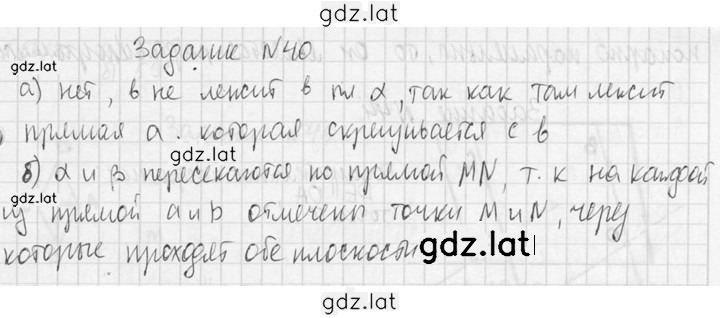 gdz.lat
Задание №40
gdz.lat
а) нет, в не лежит в пл α, так как там лежит
прямая а. которая скрещивается с в
gdz.lat
б) α и β пересекаются по прямой MN, т.к на каждой
из прямой а и b отмечены точки М и N, через
gdz.lat
которые проходят обе плоскости
gdz.lat
gdz.lat